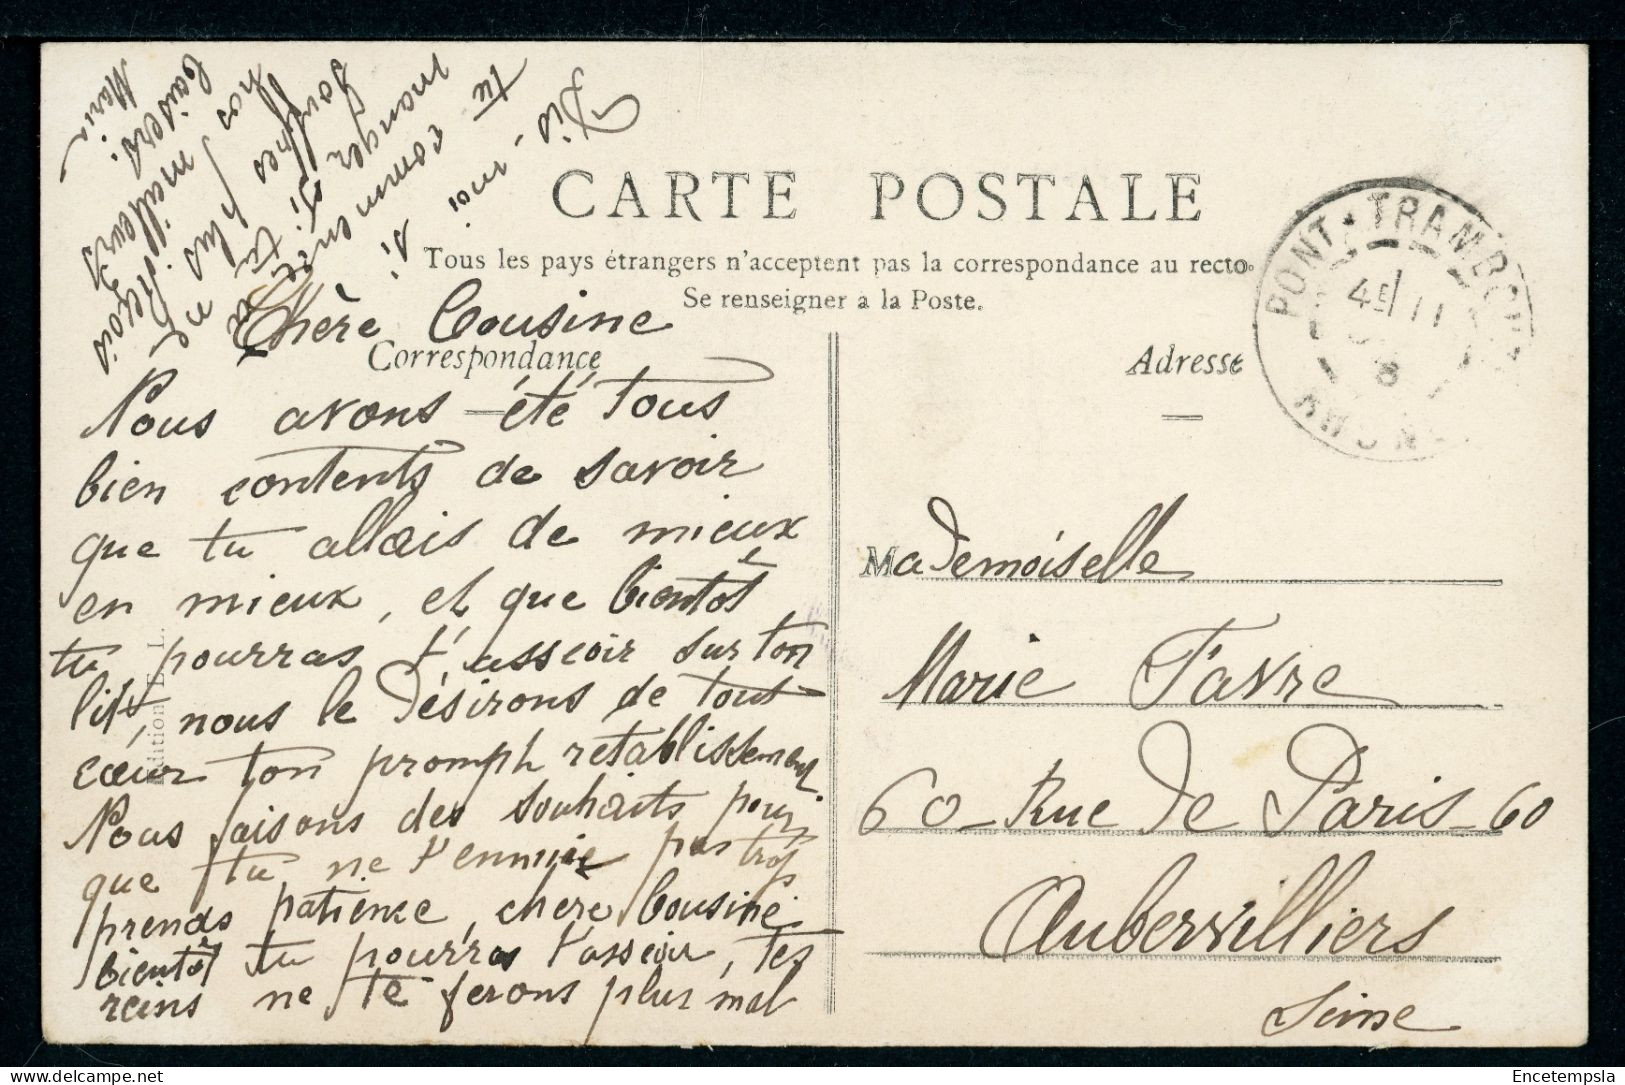 CARTE POSTALE
Tous les pays étrangers n'acceptent pas la correspondance au recto.
Se renseigner à la Poste.
Correspondance
Adresse
PONT-TRAMBOU
4E/11
8
Chère Cousine
Nous avons été tous
bien contents de savoir
que tu allais de mieux
en mieux, et que bientôt
tu pourras t'asseoir sur ton
lit, nous le désirons de tout
cœur ton prompt retablissement.
Nous faisons des souhaits pour
que tu ne t'ennuie pas trop
prends patience, chère Cousine
bientôt tu pourras t'asseoir, tes
reins ne te feront plus mal
Dis-moi si
tu commence à
manger si tu
souffres
plus
Reçois
nos meilleurs
baisers.
Marie
Mademoiselle
Marie Favre
60 - Rue de Paris - 60
Aubervilliers
Seine
Edition
Encetempsla